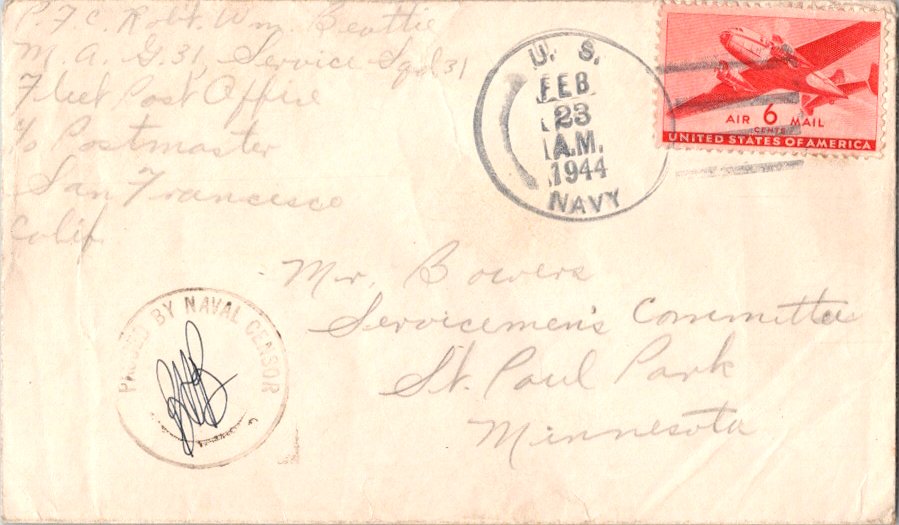 P.F.C. Robt. Wm. Beattie
M. A. G. 31, Service Sqd 31
Fleet Post Office
℅ Postmaster
San Francisco
Calif.
U. S.
FEB
23
A.M.
1944
NAVY
AIR 6 MAIL
CENTS
UNITED STATES OF AMERICA
Mr. Bowers
Servicemen's Committee
St. Paul Park
Minnesota
PASSED BY NAVAL CENSOR